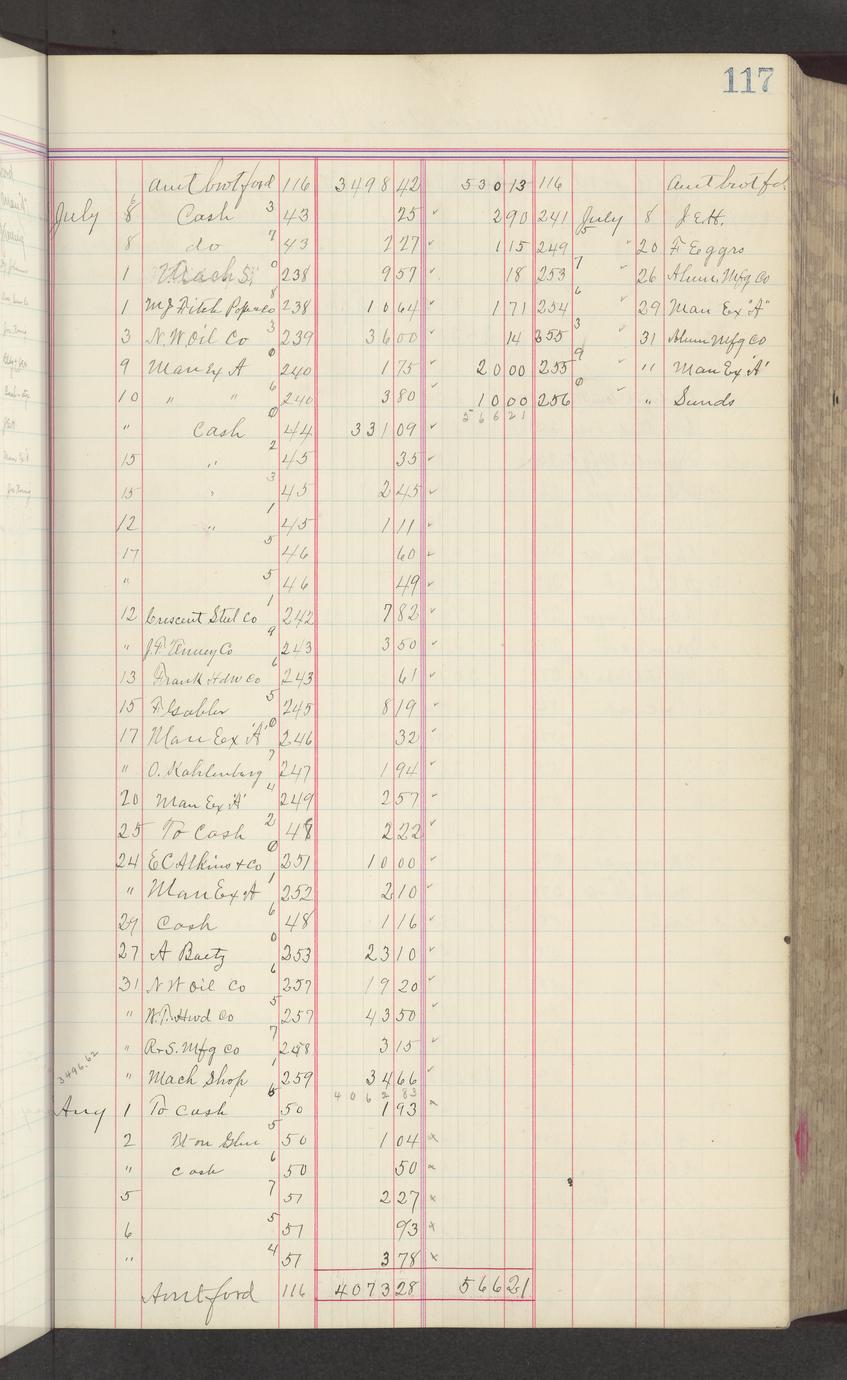 117
amt brot ford 116 3498 42 530 13 116 amt brot fd
July 8 Cash 3 43 25 2 90 241 July 8 J.E.H.
8 do 7 43 2 27 1 15 249 " 20 F Eggrs
1 Mach S 0 238 9 57 18 253 7 " 26 Alum. Mfg Co
1 8 238 10 64 1 71 254 6 " 29 Man Ex "A"
3 N.W. Oil Co 3 239 36 00 14 255 3 " 31 Alum Mfg Co
9 Man Ex A 0 240 1 75 20 00 255 9 " " Man Ex 'A'
10 " " 6 240 3 80 10 00 256 0 " Sunds
566 21
" Cash 0 44 331 09
15 " 2 45 35
15 " 3 45 2 45
12 " 1 45 1 11
17 5 46 60
" 5 46 49
12 Crescent Steel Co 1 242 7 82
" J.F. Tenney Co 9 243 3 50
13 Frank Hdw Co 6 243 61
15 F. Gabler 5 245 8 19
17 Man Ex 'A' 0 246 32
" O. Kahlenberg 7 247 1 94
20 Man Ex 'A' 4 249 2 57
25 To Cash 2 48 2 22
24 E C Atkins & Co 0 251 10 00
" Man Ex A 1 252 2 10
27 Cash 6 48 1 16
27 A Baetz 0 253 23 10
31 N W Oil Co 6 257 19 20
" Hwd Co 5 257 43 50
" R & S. Mfg Co 7 258 3 15
3496.62
" Mach Shop 1 259 34 66
4062 83
Aug 1 To Cash 6 50 1 93
2 5 50 1 04
" Cash 6 50 50
5 7 51 2 27
6 5 51 93
" 4 51 3 78
Amt ford 116 4073 28 566 21